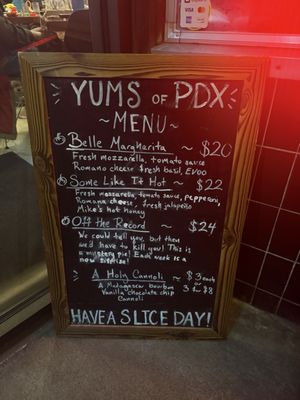 YUMS OF PDX
~ MENU ~
Belle Margherita ~ $20
Fresh mozzarella, tomato sauce
Romano cheese fresh basil, EVOO
Some Like It Hot ~ $22
Fresh mozzarella, tomato sauce, pepperoni,
Romana cheese, fresh jalapeño
Mike's hot honey
Off the Record ~ $24
We could tell you, but then
we'd have to kill you! This is
a mystery pie! Each week is a
new surprise!
A Holy Cannoli ~ $3 each
A Madagascar bourbon 3 for $8
Vanilla chocolate chip
Cannoli
HAVE A SLICE DAY!